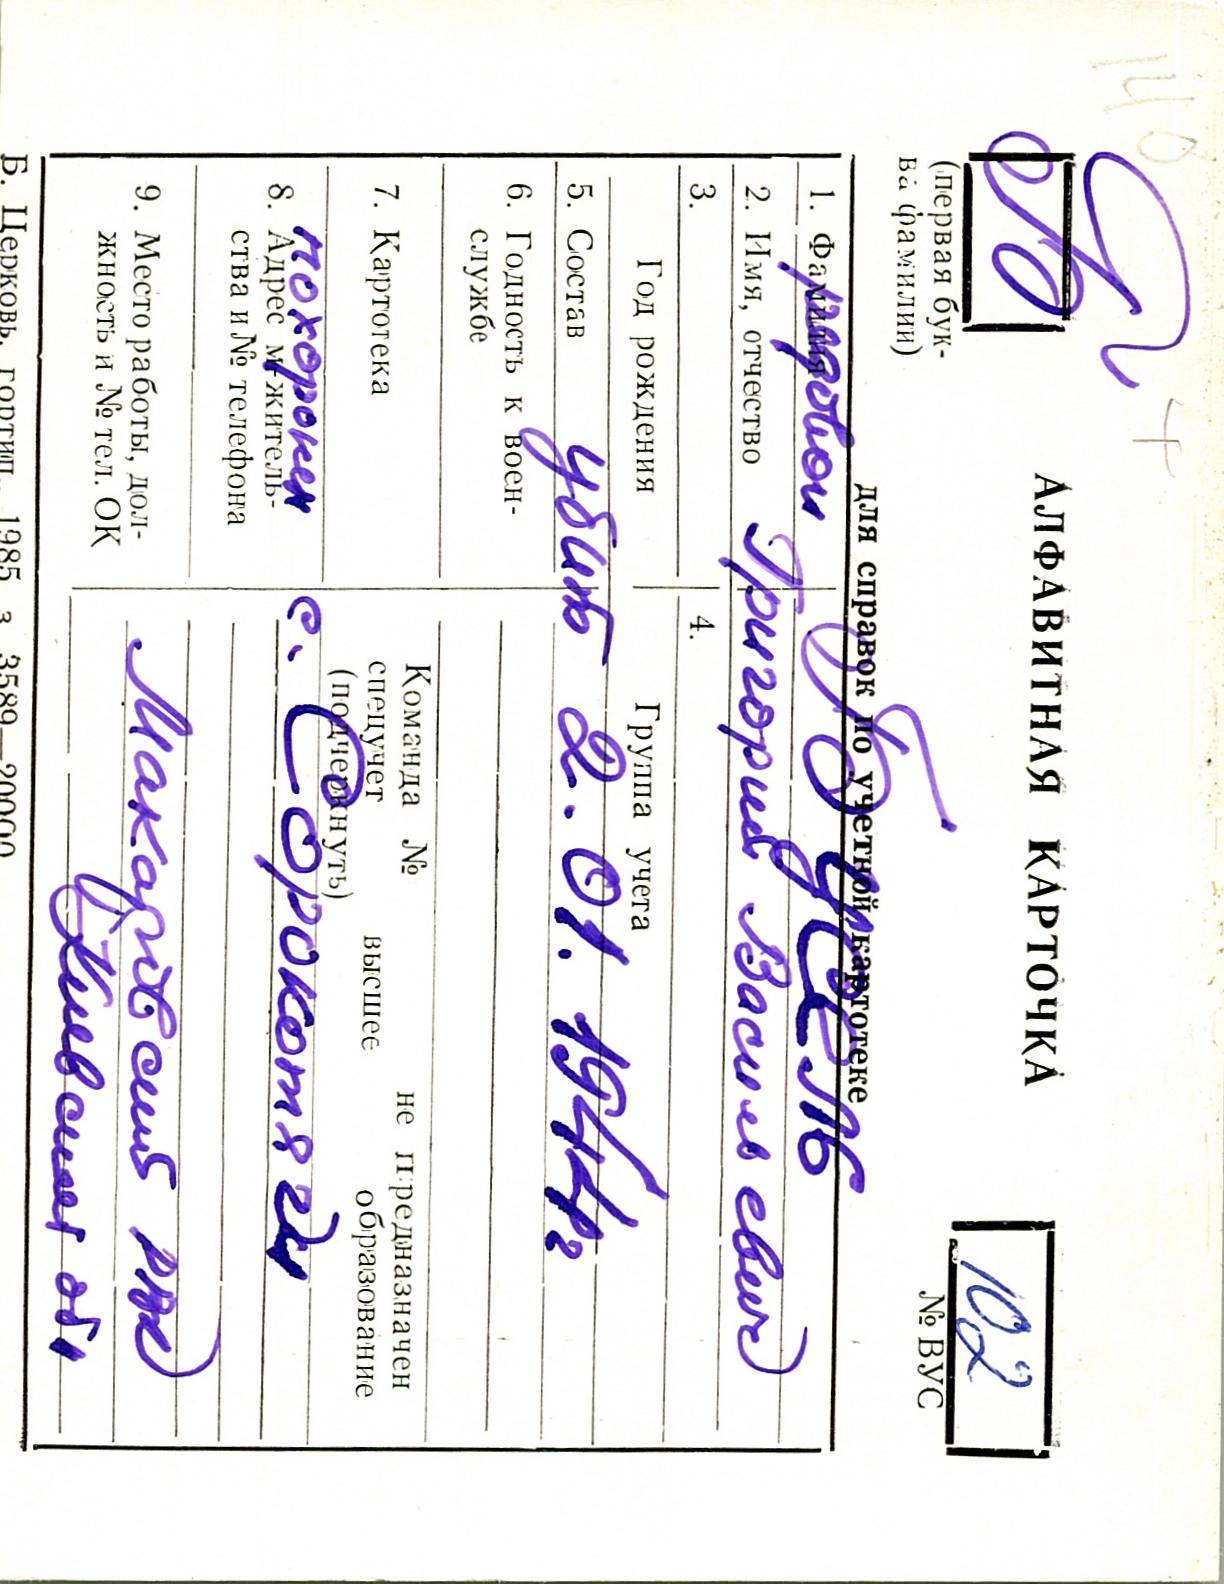 140
П +
АЛФАВИТНАЯ КАРТОЧКА
для справок по учетной картотеке
(первая бук-
ва фамилии)
102
№ ВУС
1. Фамилия
рядовой
2. Имя, отчество Григорий Васильевич
3. Год рождения
4. Группа учета
5. Состав убит 2.01.1944г
6. Годность к воен-
службе
7. Картотека
Команда № не предназначен
спецучет высшее образование
(подчеркнуть)
8. Адрес м-житель-
ства и № телефона
похоронен с.
9. Место работы, дол-
жность и № тел. ОК
Макаровский
Киевская обл
Б. Церковь, гортип., 1985 з. 3589—20000